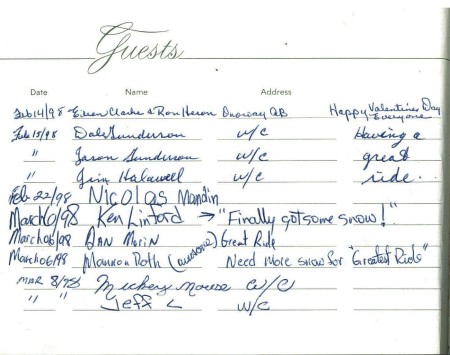 Guests
Date Name Address
Feb 14/98 Eileen Clarke & Ron Heron Onoway AB Happy Valentines Day Everyone
Feb 15/98 Dale Gunderson w/c Having a
" Jason Gunderson w/c great
" Jim Halawell w/c ride.
Feb 22/98 Nicolas Mandin
March 6/98 Ken Linford → "Finally got some snow!"
March 06/98 DAN Morin Great Ride
March 06/98 Roth (awesome) Need more snow for "Greatest Ride"
MAR 8/98 Mickey Mouse W/C
" " Jeff L w/c